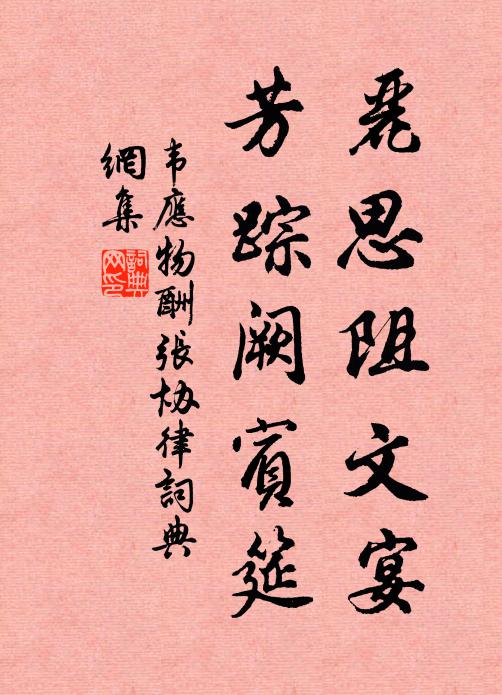 麗思阻文宴
芳踪阙賓筵
韦應物酬張协律詞典
網集
詞典
网印